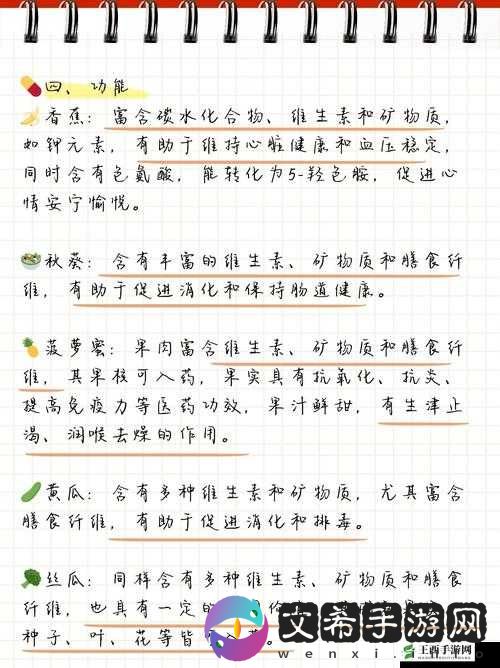 四、功能
香蕉：富含碳水化合物、维生素和矿物质，
如钾元素，有助于维持心脏健康和血压稳定，
同时含有色氨酸，能转化为5-羟色胺，促进心
情安宁愉悦。
秋葵：含有丰富的维生素、矿物质和膳食纤
维，有助于促进消化和保持肠道健康。
菠萝蜜：果肉富含维生素、矿物质和膳食纤
维，其果核可入药，果实具有抗氧化、抗炎、
提高免疫力等医药功效，果汁鲜甜，有生津止
渴、润喉去燥的作用。
黄瓜：含有多种维生素和矿物质，尤其富含
膳食纤维，有助于促进消化和排毒。
丝瓜：同样含有多种维生素、矿物质和膳食
纤维，也具有一定的
种子、叶、花等皆
艾希手游网
wenxi.com